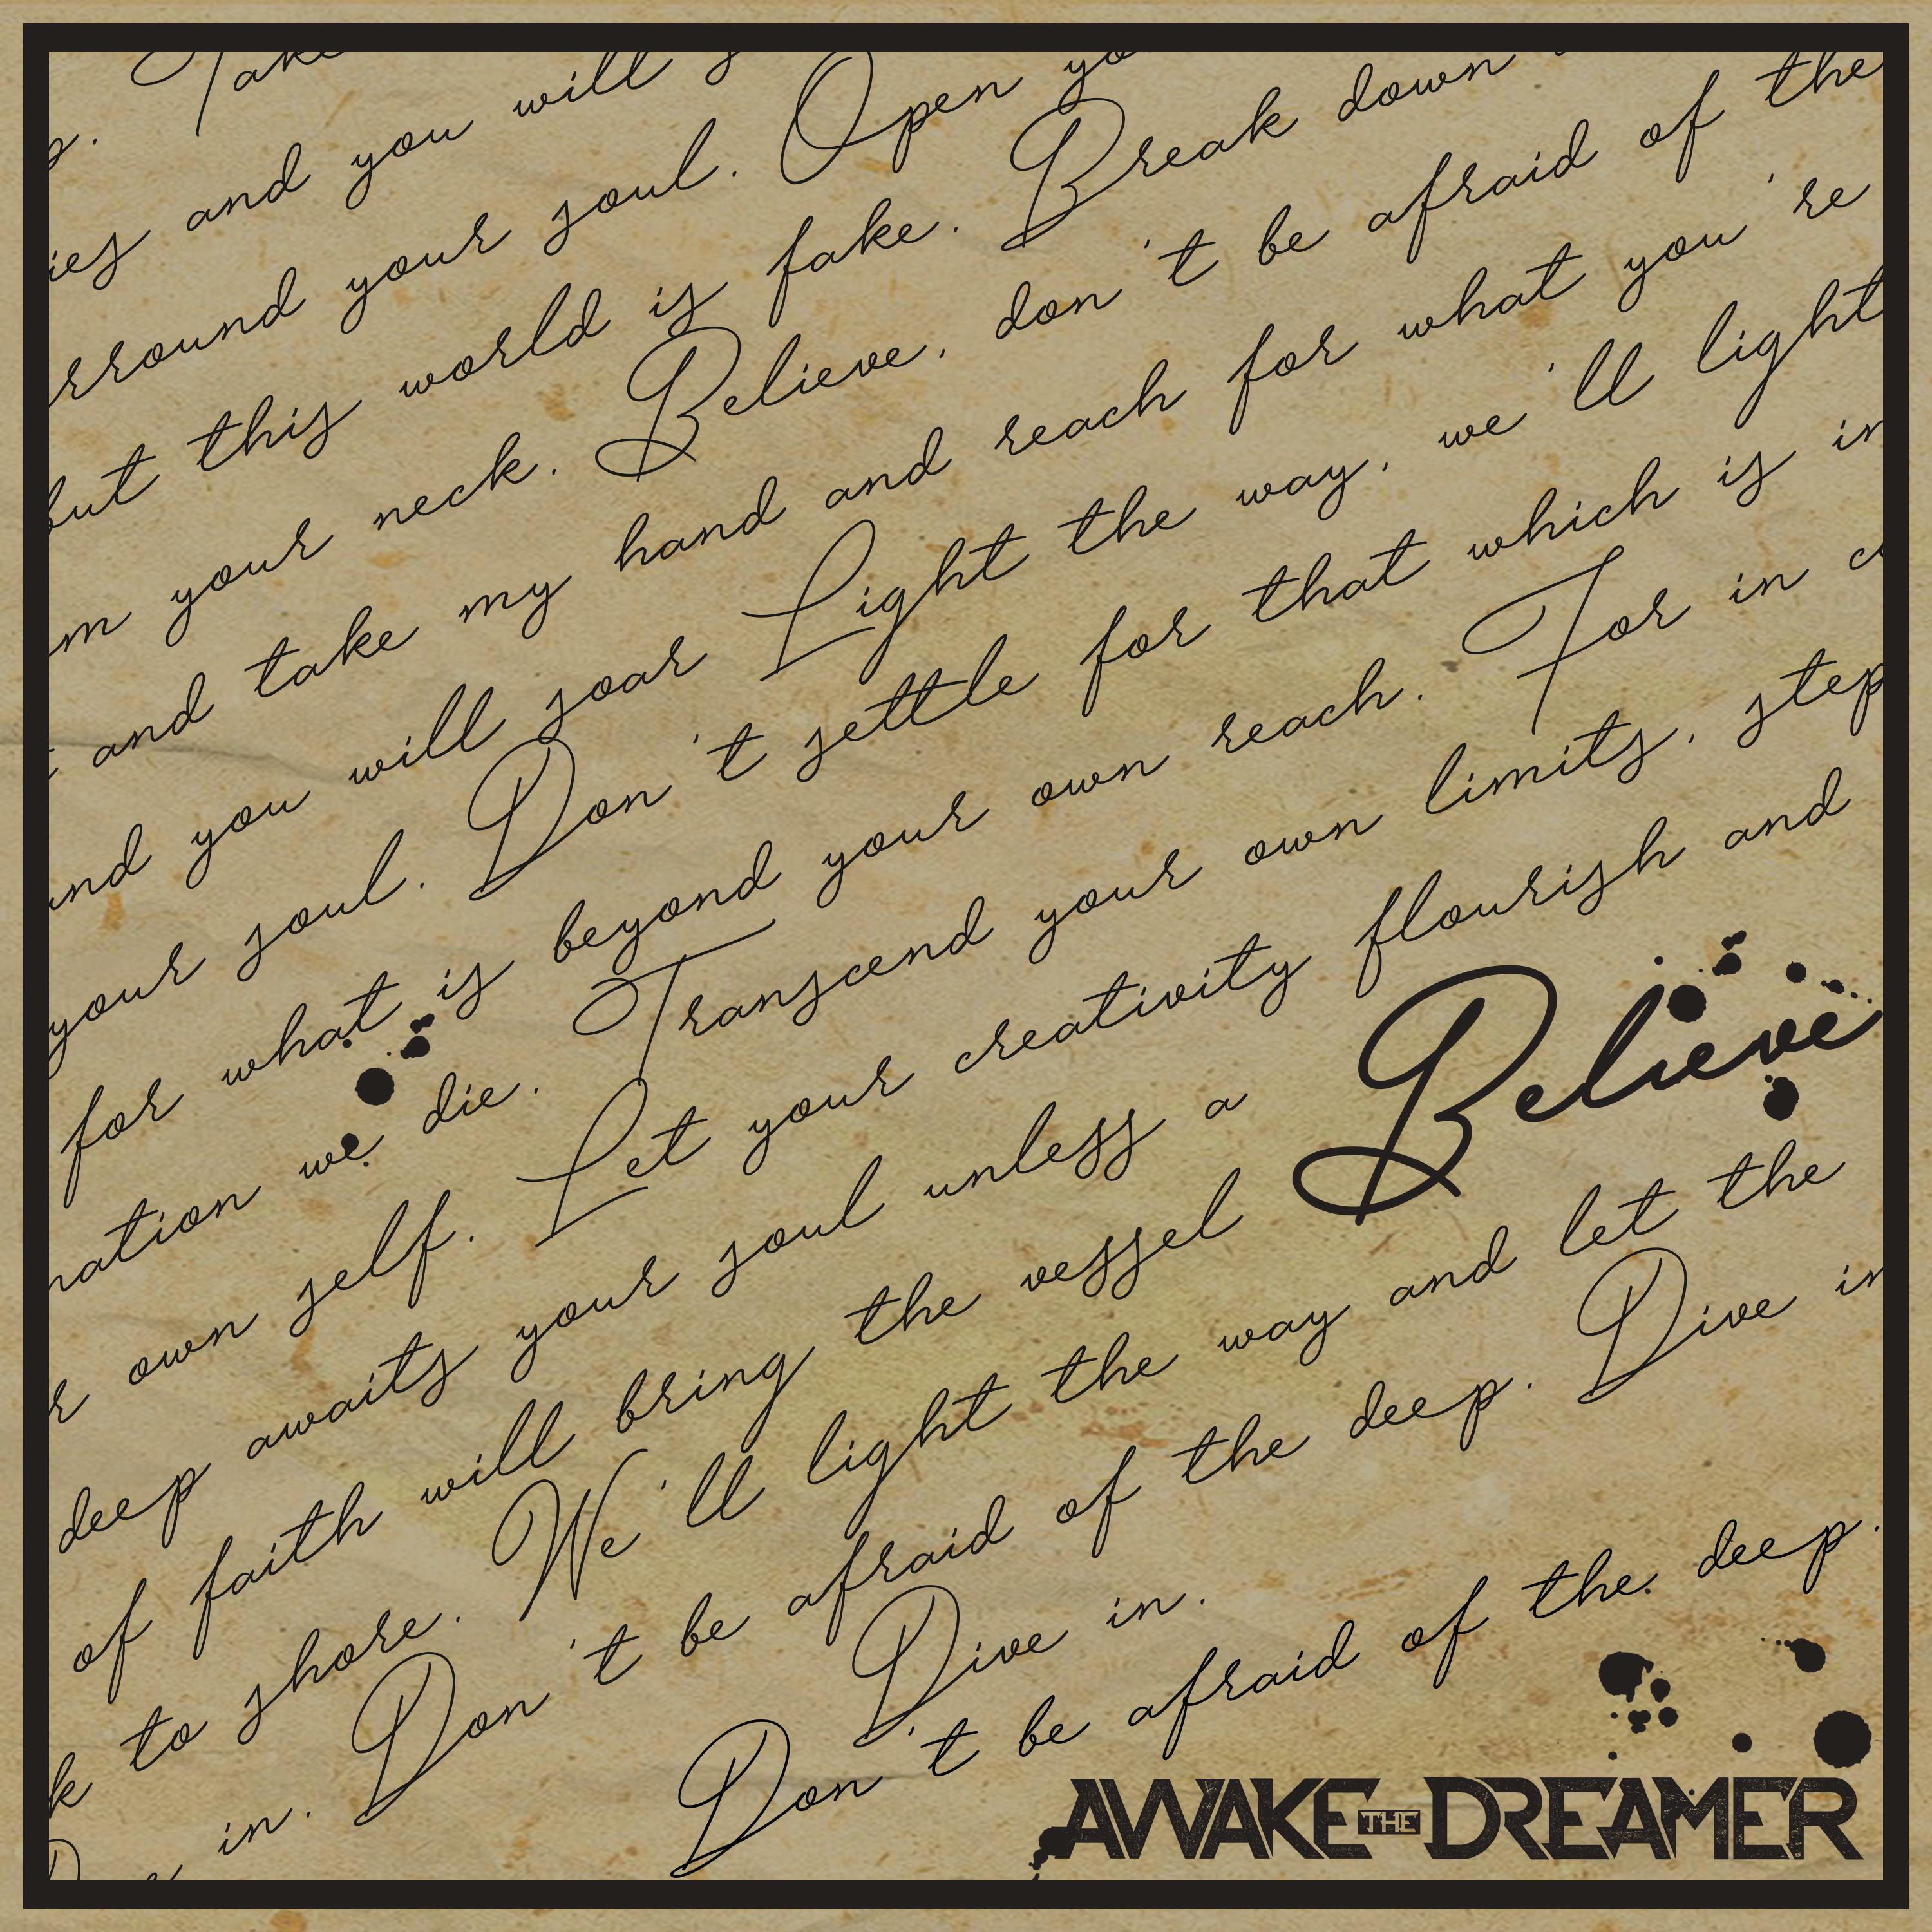 p. Take
and you will
your soul. Open
but this world is fake. Break down
your neck. Believe, don't be afraid of the
and take my hand and reach for what you're
you will soar Light the way, we'll light
your soul. Don't settle for that which is in
for what is beyond your own reach. For in
nation we die. Transcend your own limits, step
r own self. Let your creativity flourish and
deep awaits your soul unless a
of faith will bring the vessel Believe
k to shore. We'll light the way and let the
in. Don't be afraid of the deep. Dive in
Dive in.
Don't be afraid of the deep.
AWAKE THE DREAMER